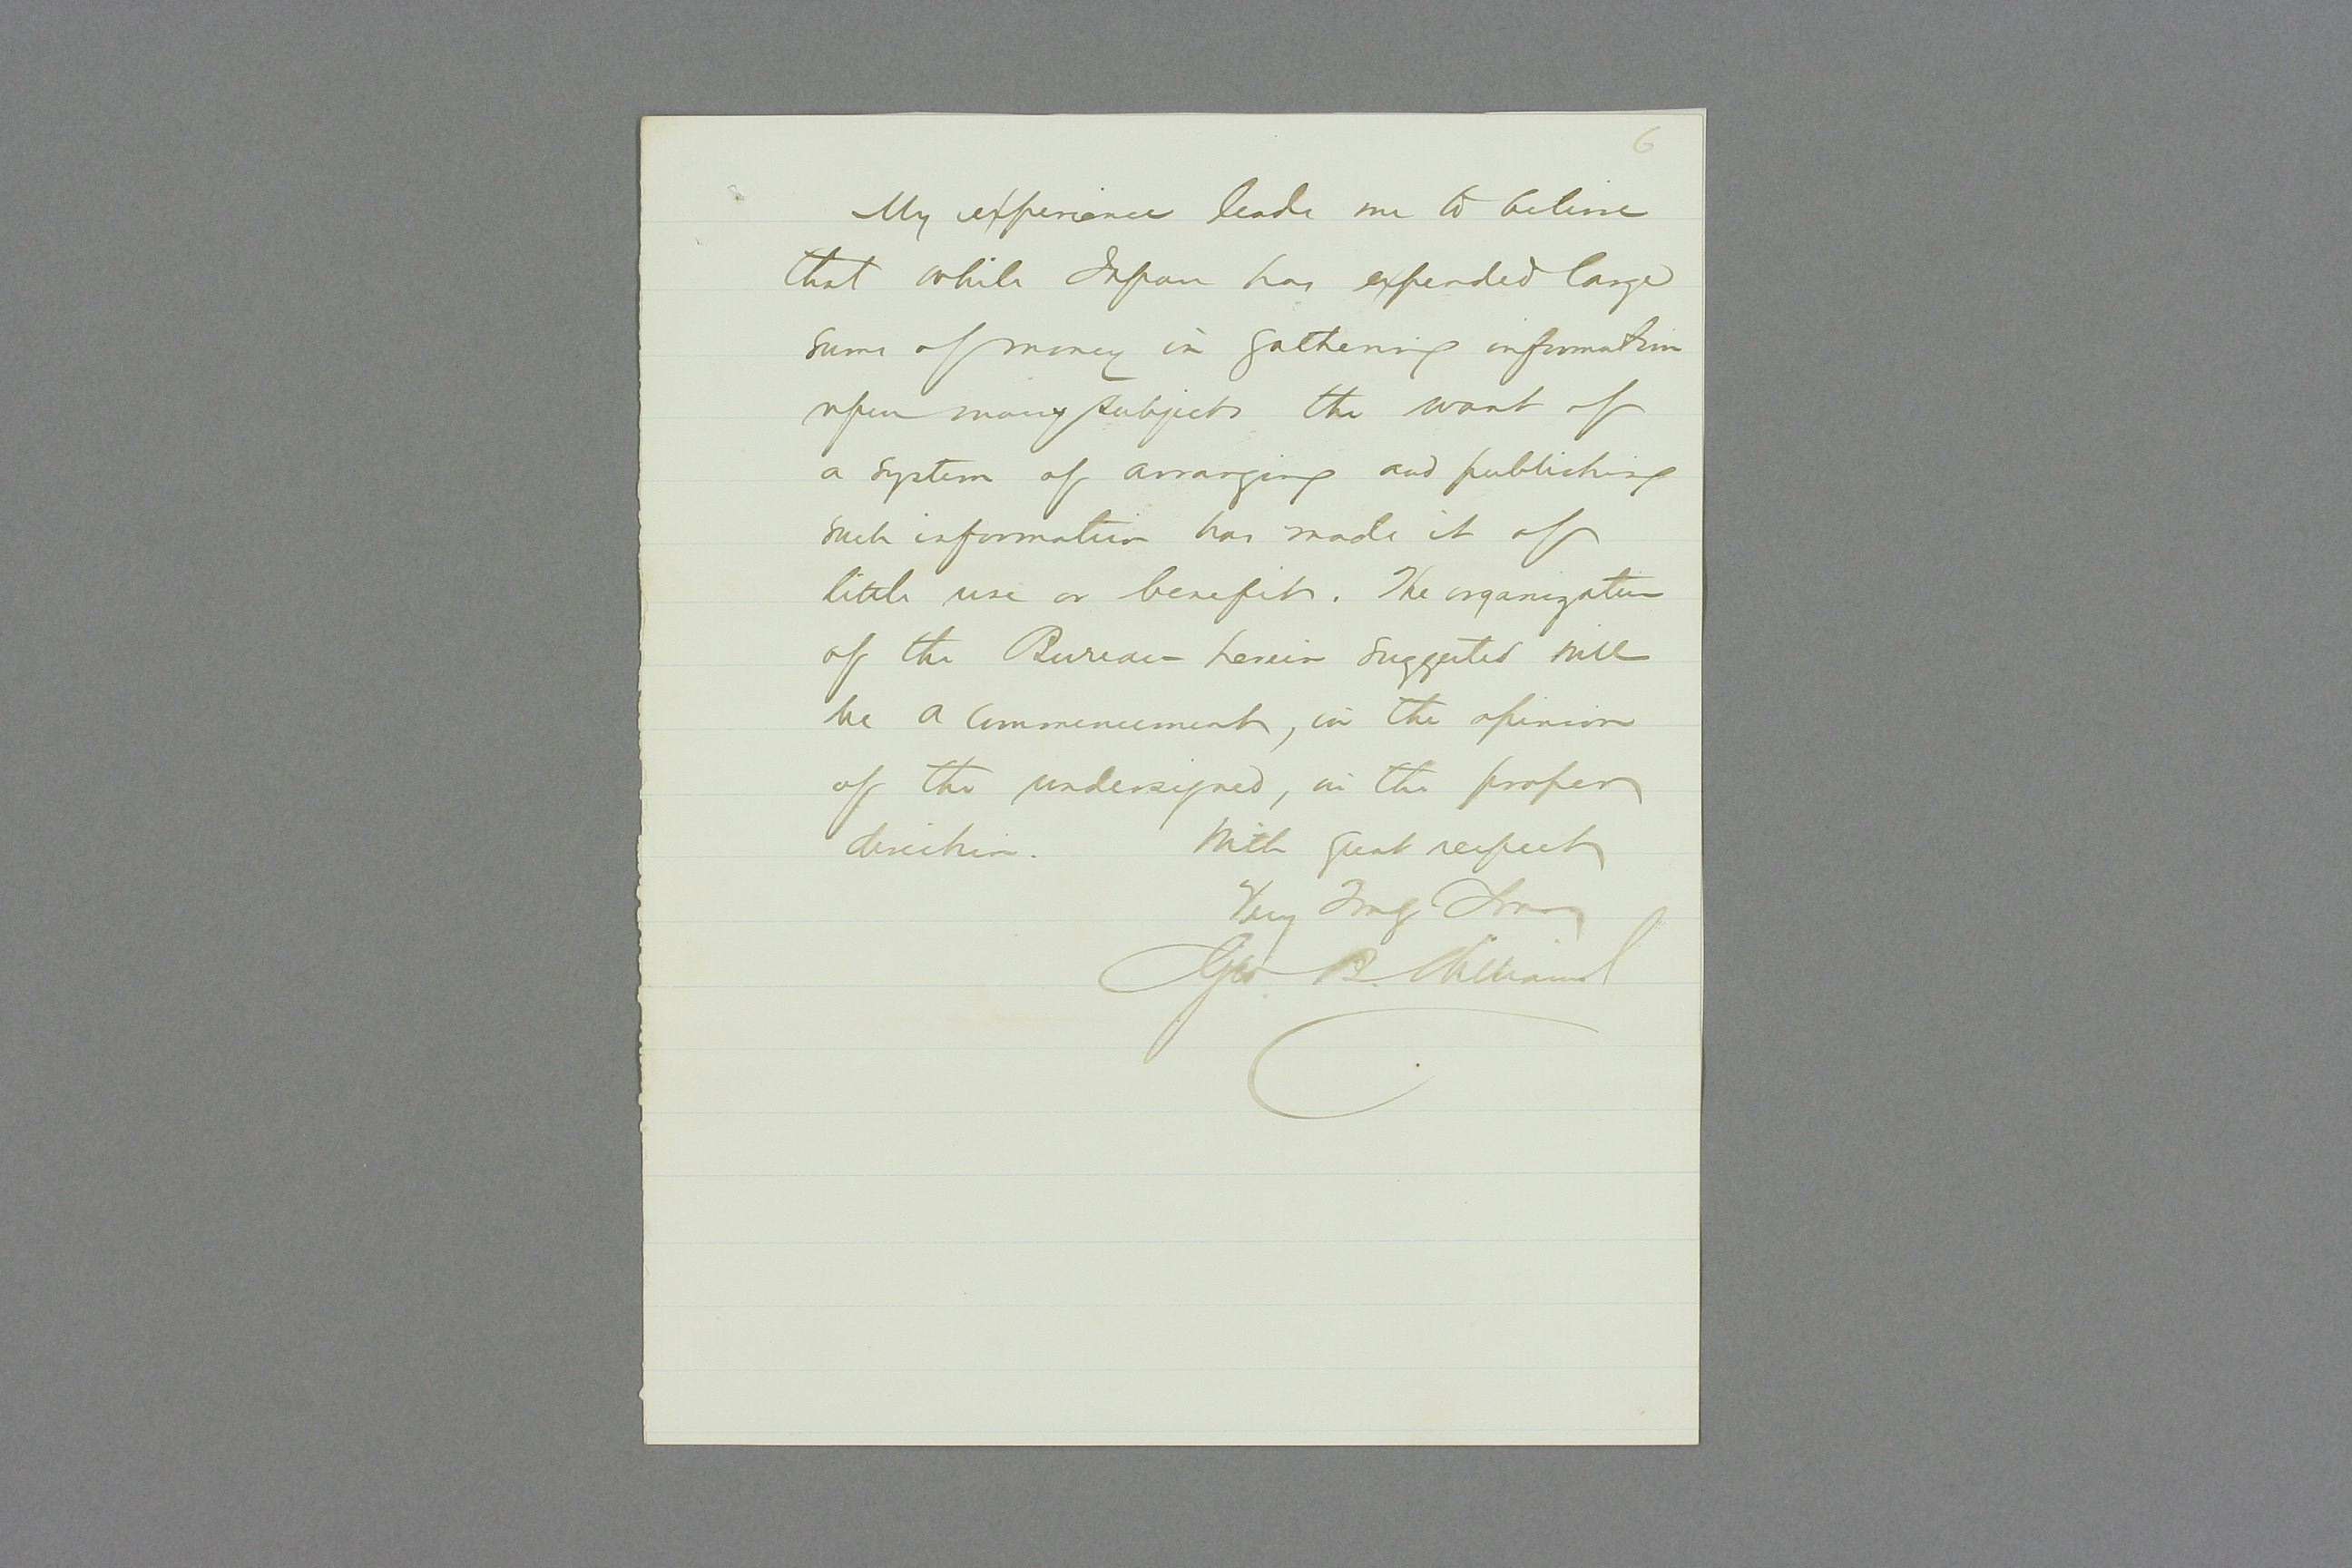 6
My experience leads me to believe
that while Japan has expended large
sums of money in gathering information
upon many subjects the want of
a system of arranging and publishing
such information has made it of
little use or benefit. The organization
of the Bureau herein suggested will
be a commencement, in the opinion
of the undersigned, in the proper
direction. With great respect
Very Truly Yours
Geo. B. Williams